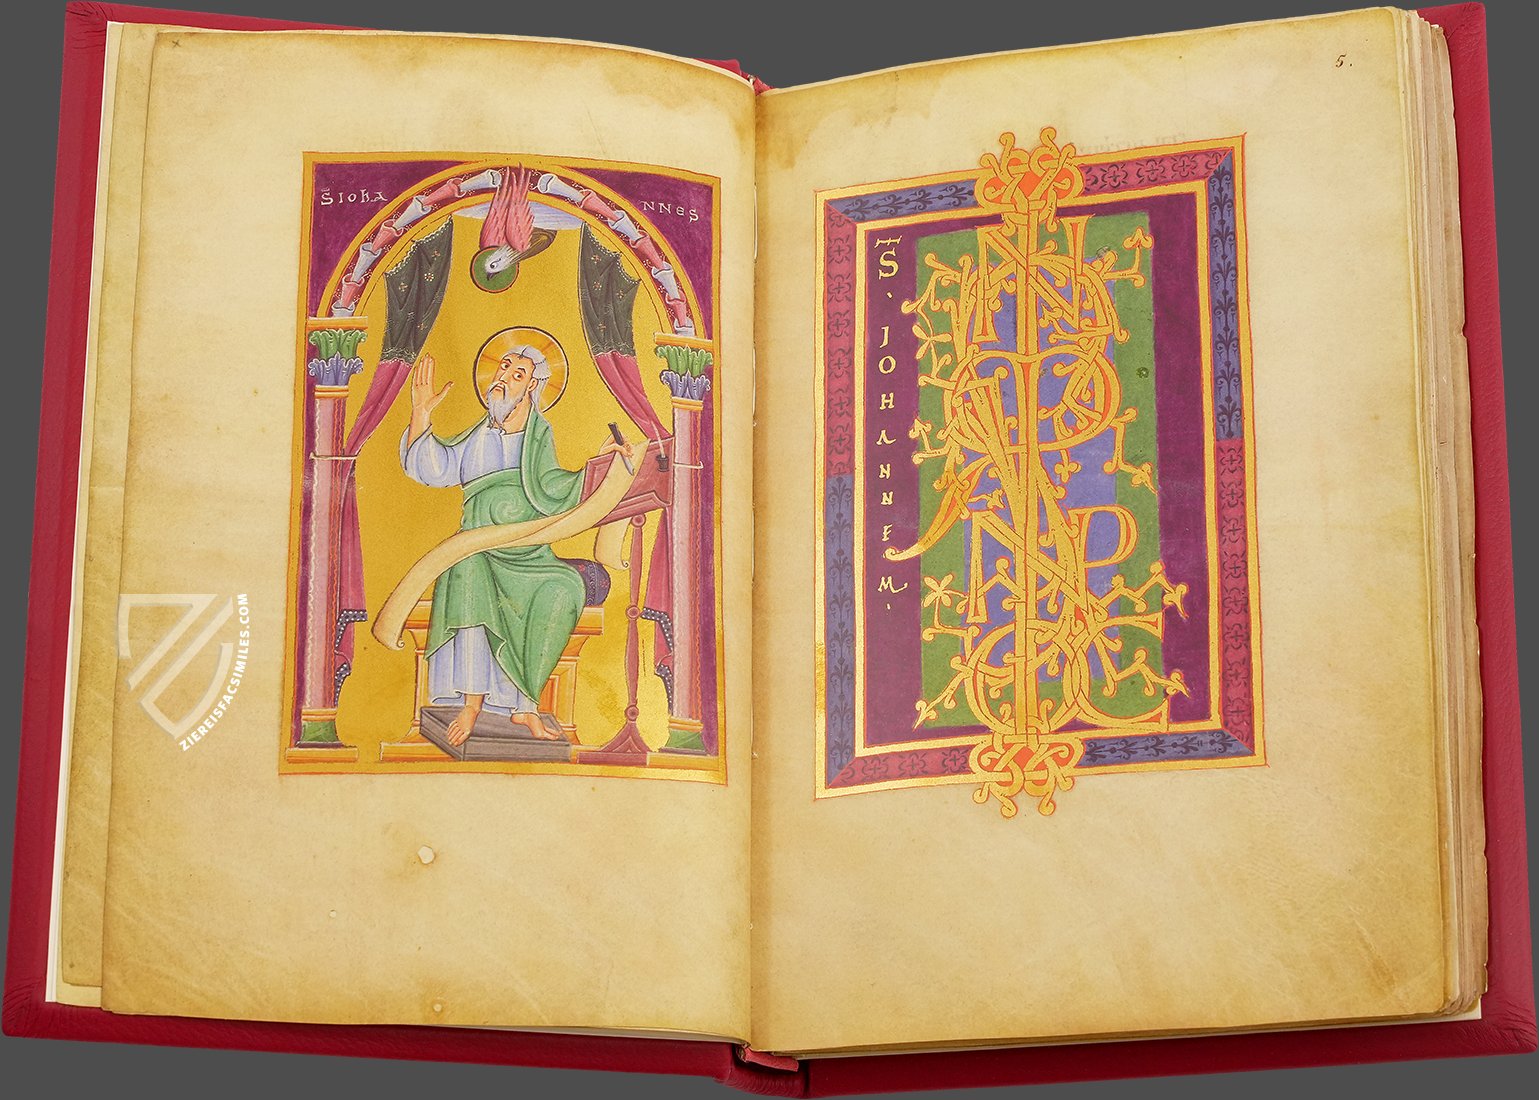 S̄ IOHA
NNES
5.
S̄ · JOHANNEM ·
IN
P
NP
C
ZIEREISFACSIMILES.COM